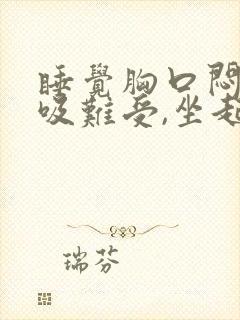 睡覺胸口悶
吸難受,坐起
瑞芬